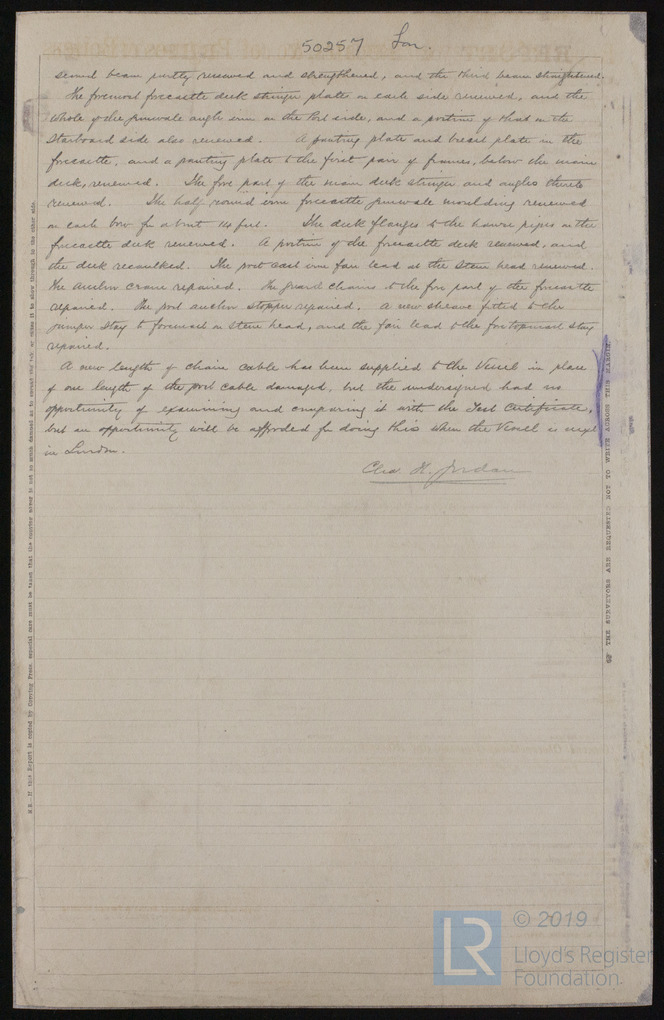 50257 Lon.
second beam partly renewed and strengthened, and the third beam straightened.
The foremost forecastle deck stringer plate on each side renewed, and the
whole of the gunwale angle iron on the Port side, and a portion of that on the
Starboard side also renewed. A panting plate and breast plate in the
forecastle, and a panting plate to the first pair of frames, below the main
deck, renewed. The fore part of the main deck stringer and angles thereto
renewed. The half round iron forecastle gunwale moulding renewed
on each bow for about 14 feet. The deck flanges to the hawse pipes on the
forecastle deck renewed. A portion of the forecastle deck renewed, and
the deck recaulked. The port cast iron fair lead at the stem head renewed.
The anchor crane repaired. The guard chains to the fore part of the forecastle
repaired. The port anchor stopper repaired. A new sheave fitted to the
jumper stay to foremast on stem head, and the fair lead to the foretopmast stay
repaired.
A new length of chain cable has been supplied to the Vessel in place
of one length of the port cable damaged, but the undersigned had no
opportunity of examining and comparing it with the Test Certificate,
but an opportunity will be afforded for doing this when the Vessel is next
in London.
Chas. H. Jordan
THE SURVEYORS ARE REQUESTED NOT TO WRITE ACROSS THIS MARGIN.
N.B. If this Report is copied by Copying Press, especial care must be taken that the
© 2019
LR
Lloyd's Register
Foundation